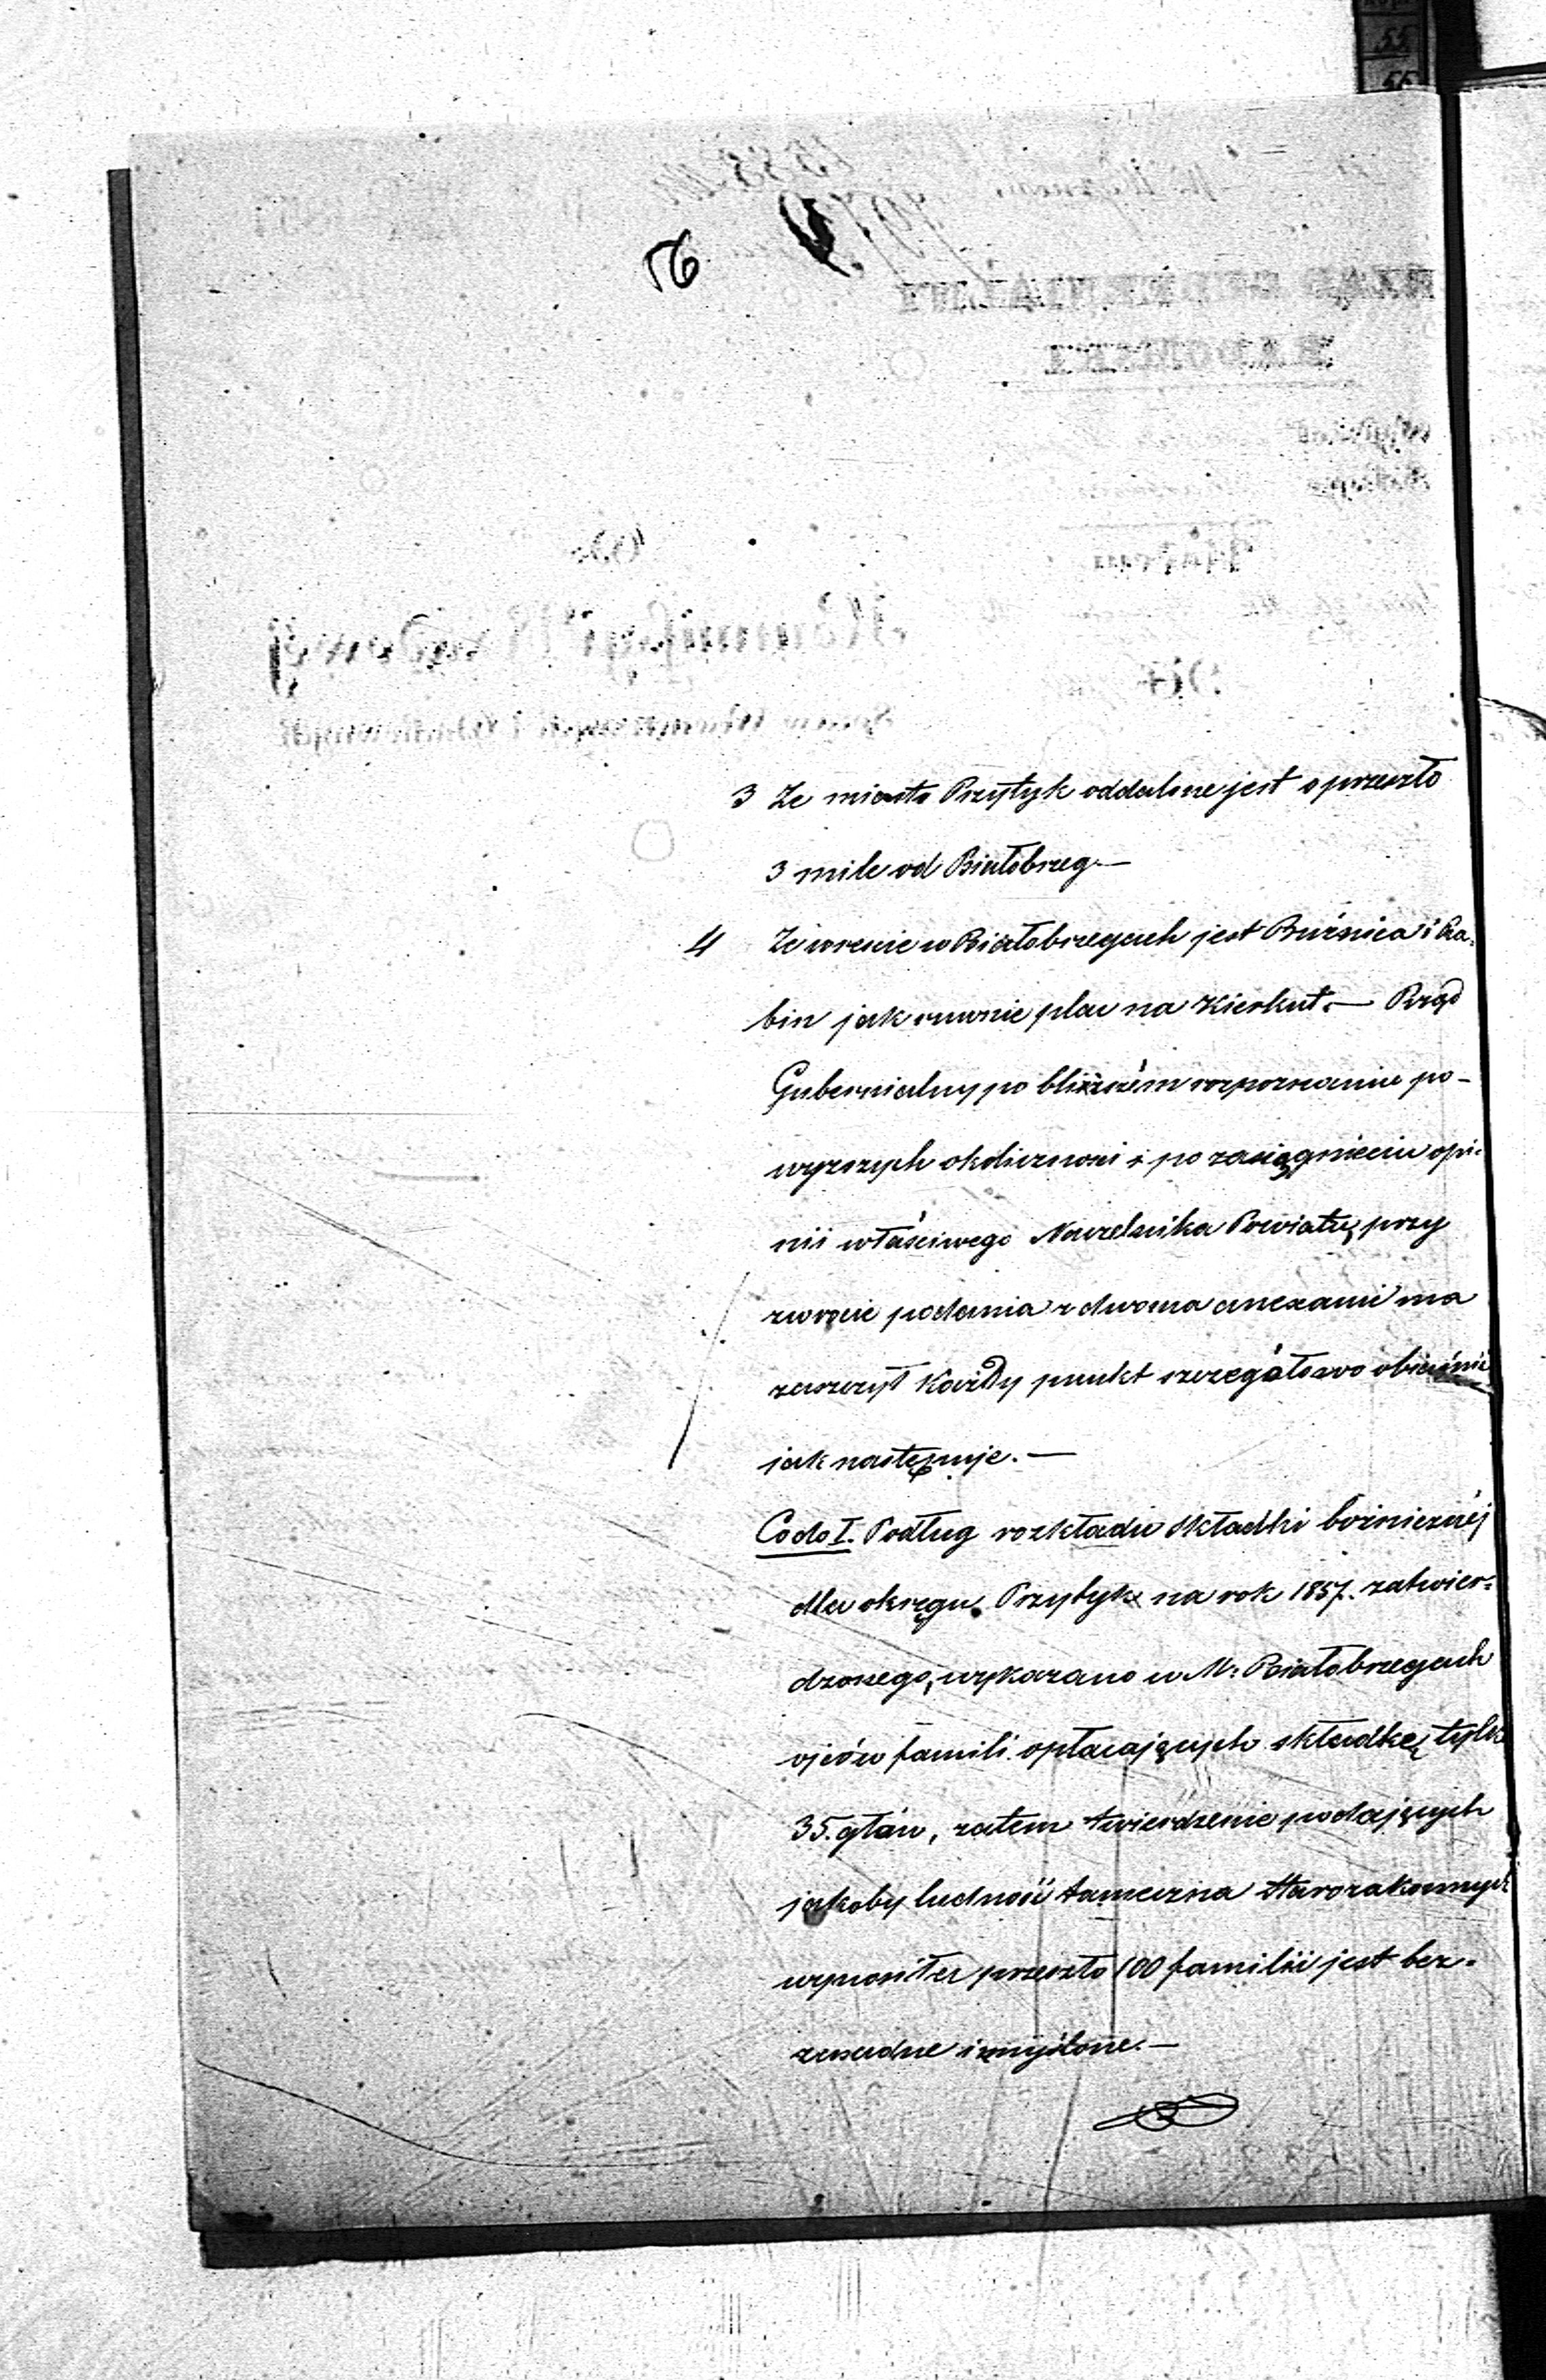 56
3 Ze miasto Przytyk oddalone jest o przeszło
3 mile od Białobrzeg.—
4 Ze wresie w Białobrzegach jest Buźnica i Ra=
bin jak rownie plac na Kierkut.— Rząd
Gubernialny po bliższém rozpoznaniu po-
wyższych okoliczności i po zasiągnieciu opi-
nii właściwego Naczelnika Powiatu, przy
zwrocie podania z dwoma anexami ma
zaszczyt każdy punkt szczegółowo objaśnić
jak następuje.—
Co do I. Podług rozkładu składki bożnicznéj
dla okręgu Przytyk na rok 1857. zatwier=
dzonego, wykazano w M: Białobrzegach
ojców famili opłacających składkę tylko
35. głów, zatem twierdzenie podających
jakoby ludność tameczna Starozakonnych
wynosiła przeszło 100 familii jest bez=
zasadne i zmyślone.—